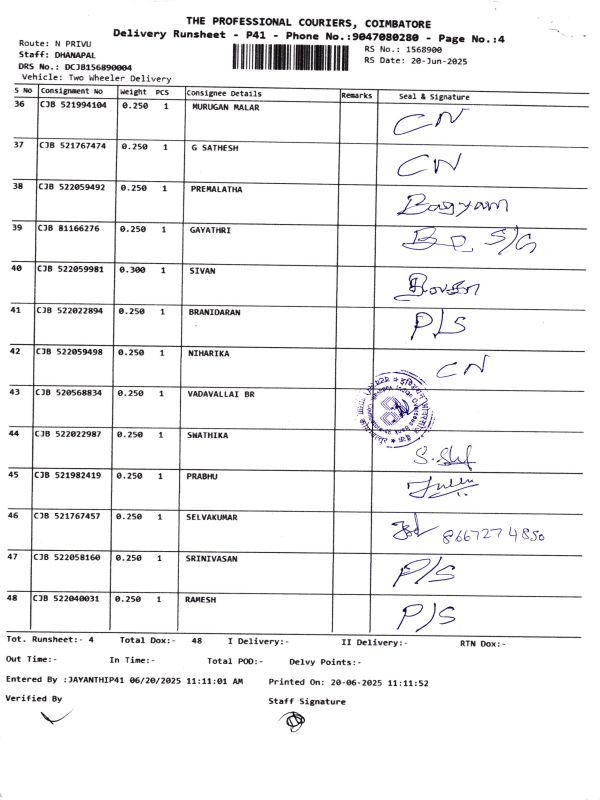 THE PROFESSIONAL COURIERS, COIMBATORE
Delivery Runsheet - P41 - Phone No.:9047080280 - Page No.:4
Route: N PRIVU
RS No.: 1568900
Staff: DHANAPAL
RS Date: 20-Jun-2025
DRS No.: DCJB156890004
Vehicle: Two Wheeler Delivery
S No Consignment No Weight PCS Consignee Details Remarks Seal & Signature
36 CJB 521994104 0.250 1 MURUGAN MALAR CN
37 CJB 521767474 0.250 1 G SATHESH CN
38 CJB 522059492 0.250 1 PREMALATHA Bagyam
39 CJB 81166276 0.250 1 GAYATHRI
40 CJB 522059981 0.300 1 SIVAN
41 CJB 522022894 0.250 1 BRANIDARAN P/S
42 CJB 522059498 0.250 1 NIHARIKA CN
43 CJB 520568834 0.250 1 VADAVALLAI BR
44 CJB 522022987 0.250 1 SWATHIKA
45 CJB 521982419 0.250 1 PRABHU
46 CJB 521767457 0.250 1 SELVAKUMAR 8667274850
47 CJB 522058160 0.250 1 SRINIVASAN P/S
48 CJB 522040031 0.250 1 RAMESH P/S
Tot. Runsheet:- 4 Total Dox:- 48 I Delivery:- II Delivery:- RTN Dox:-
Out Time:- In Time:- Total POD:- Delvy Points:-
Entered By :JAYANTHIP41 06/20/2025 11:11:01 AM Printed On: 20-06-2025 11:11:52
Verified By Staff Signature